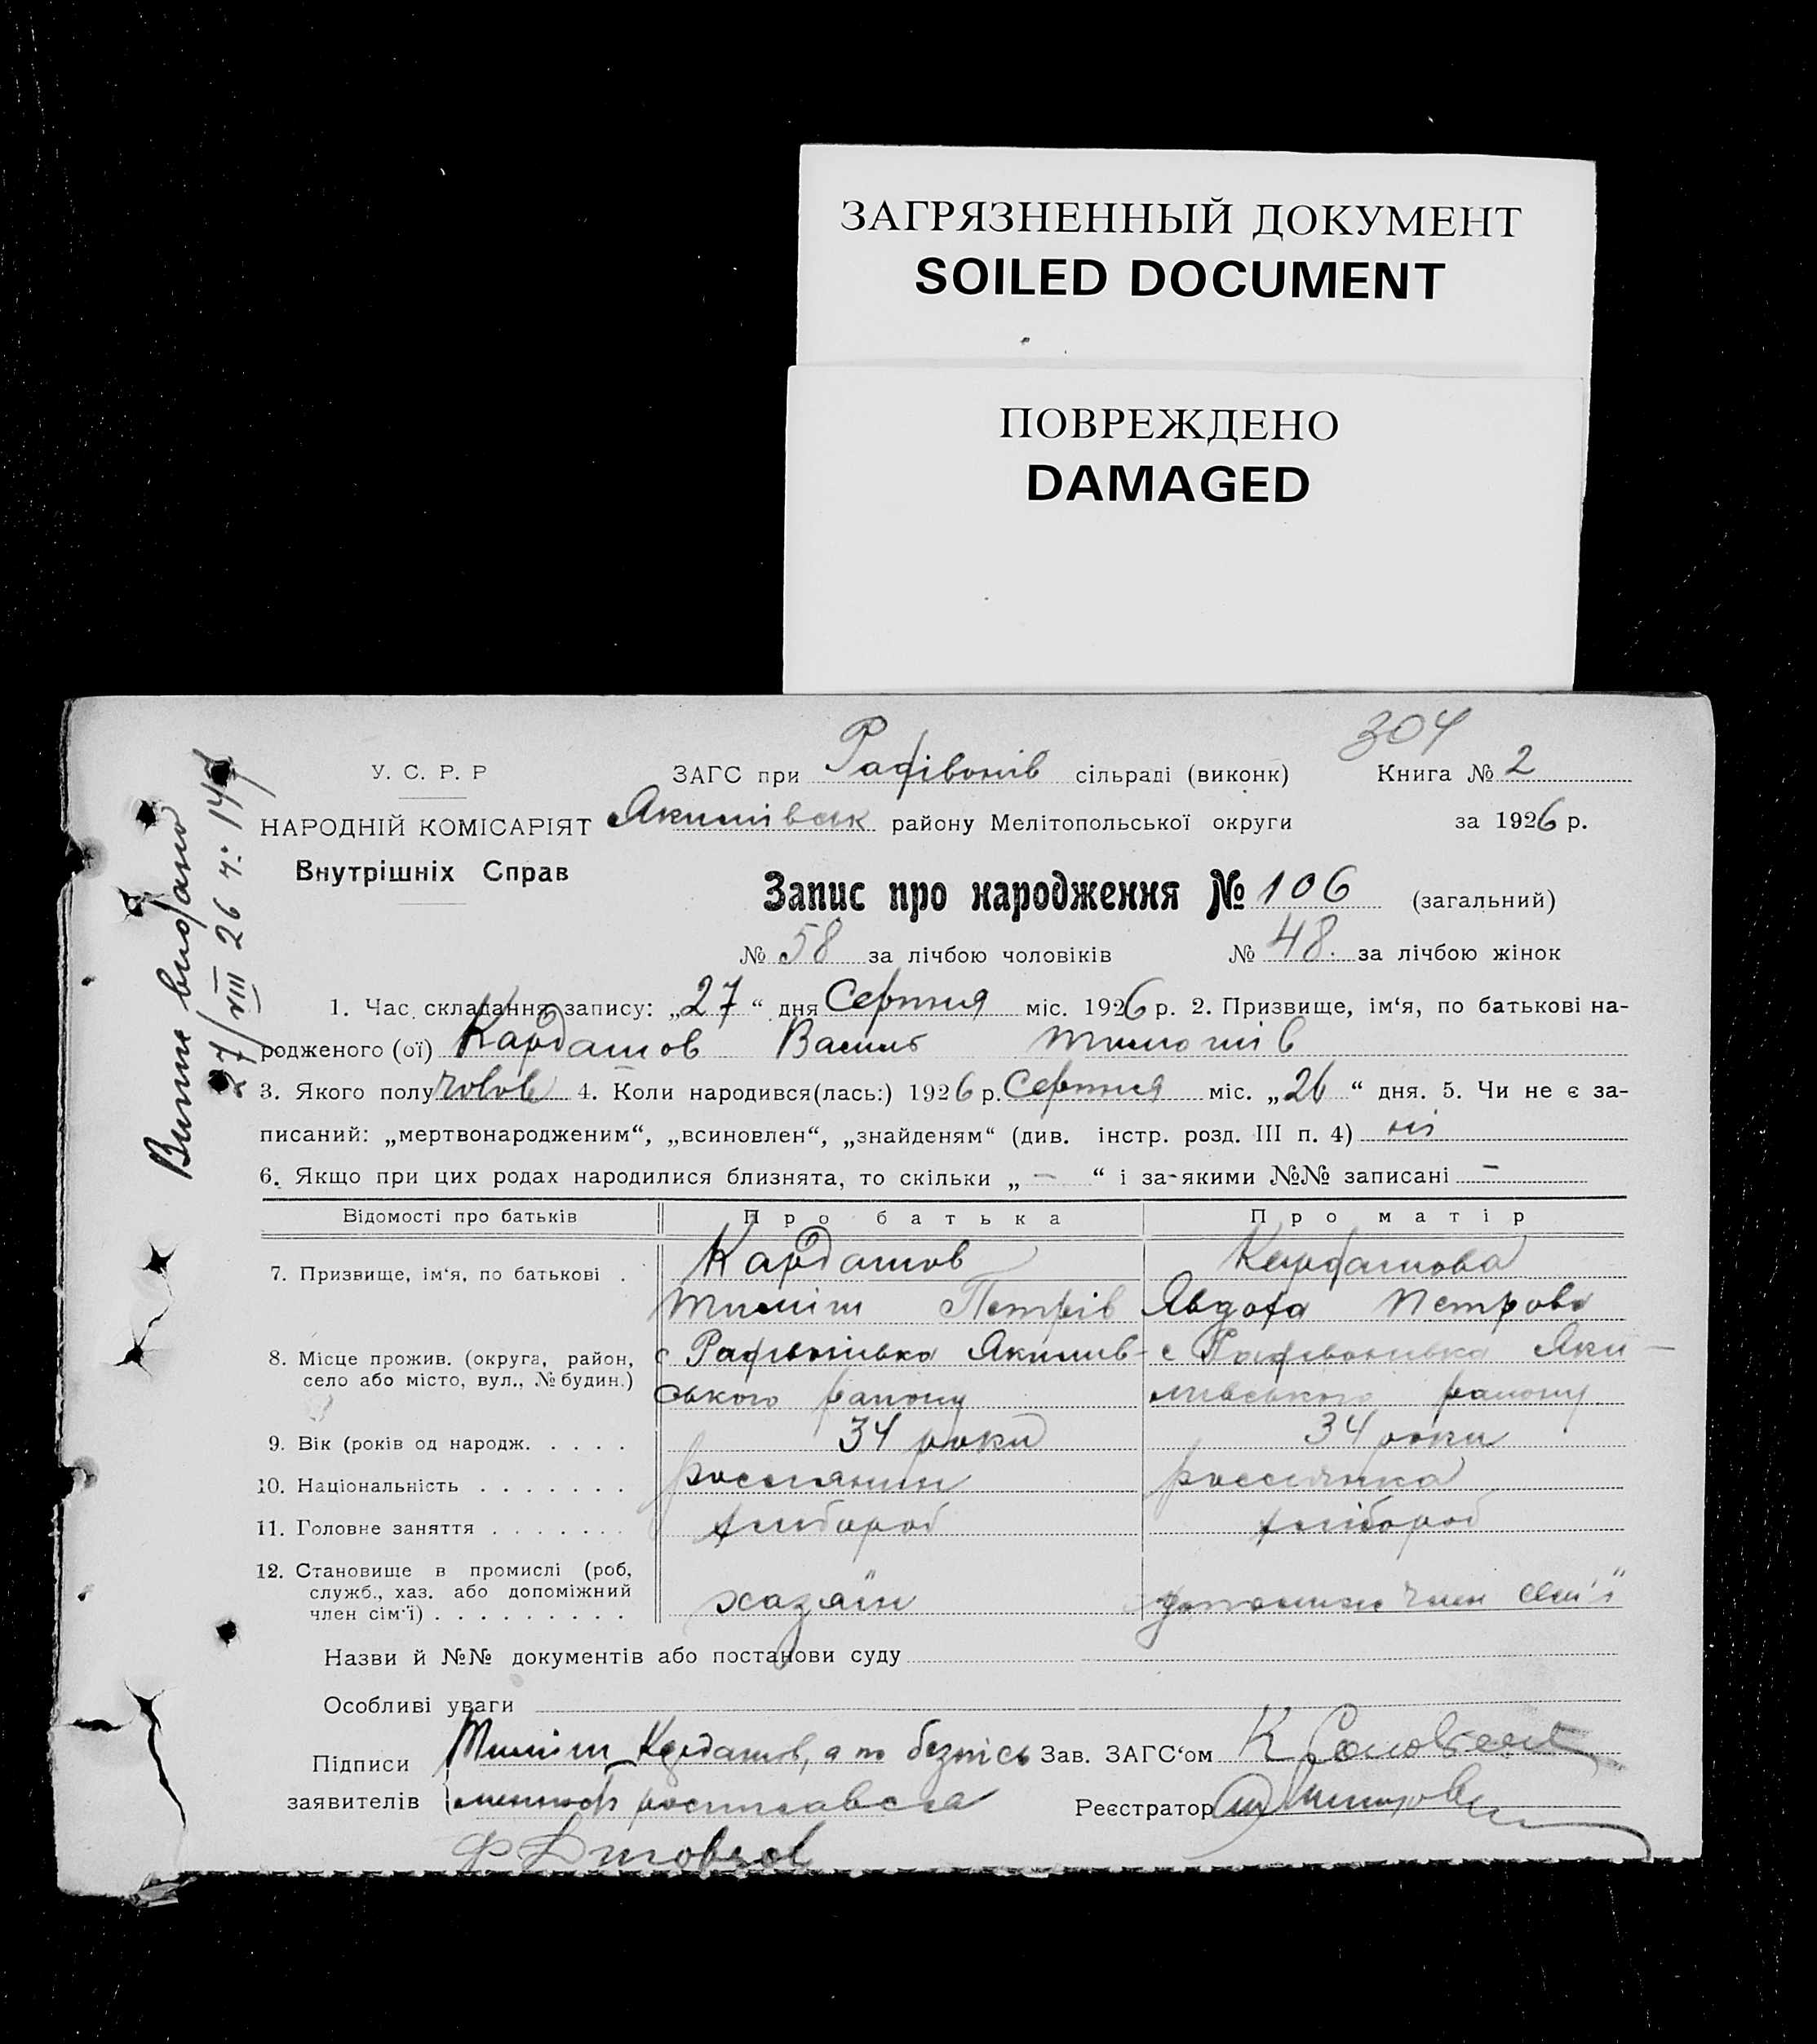 ЗАГРЯЗНЕННЫЙ ДОКУМЕНТ
SOILED DOCUMENT
ПОВРЕЖДЕНО
DAMAGED
304
У. С. Р. Р
НАРОДНІЙ КОМІСАРІЯТ
Внутрішніх Справ
ЗАГС при сільраді (виконк) Книга № 2
району Мелітопольської округи за 1926 р.
Запис про народження № 106 (загальний)
№ 58 за лічбою чоловіків № 48. за лічбою жінок
1. Час складання запису: „27“ дня Серпня міс. 1926 р. 2. Призвище, ім‘я, по батькові на-
родженого (ої) Кардашов Василь
3. Якого полу чолов 4. Коли народився(лась:) 1926 р. Серпня міс. „26“ дня. 5. Чи не є за-
писаний: „мертвонародженим“, „всиновлен“, „знайденям“ (див. інстр. розд. III п. 4) ні
6. Якщо при цих родах народилися близнята, то скільки „ — “ і за-якими №№ записані —
Відомості про батьків Про батька Про матір
7. Призвище, ім‘я, по батькові . Кардашов Кардашова
Тиміш Петрів Явдоха Петрова
8. Місце прожив. (округа, район,
село або місто, вул., № будин.)
ського району району
9. Вік (років од народж. . . . . 34 роки 34 роки
10. Національність . . . . . . . россиянин россиянка
11. Головне заняття . . . . . . . хлібороб хлібороб
12. Становище в промислі (роб,
служб., хаз. або допоміжний
член сім‘ї) . . . . . . . . . хазяїн член сем'ї
Назви й №№ документів або постанови суду
Особливі уваги
Підписи Тиміш Кардашов, а по безпісь Зав. ЗАГС‘ом
заявителів росписався Реєстратор
27/VIII 26 ч. 147